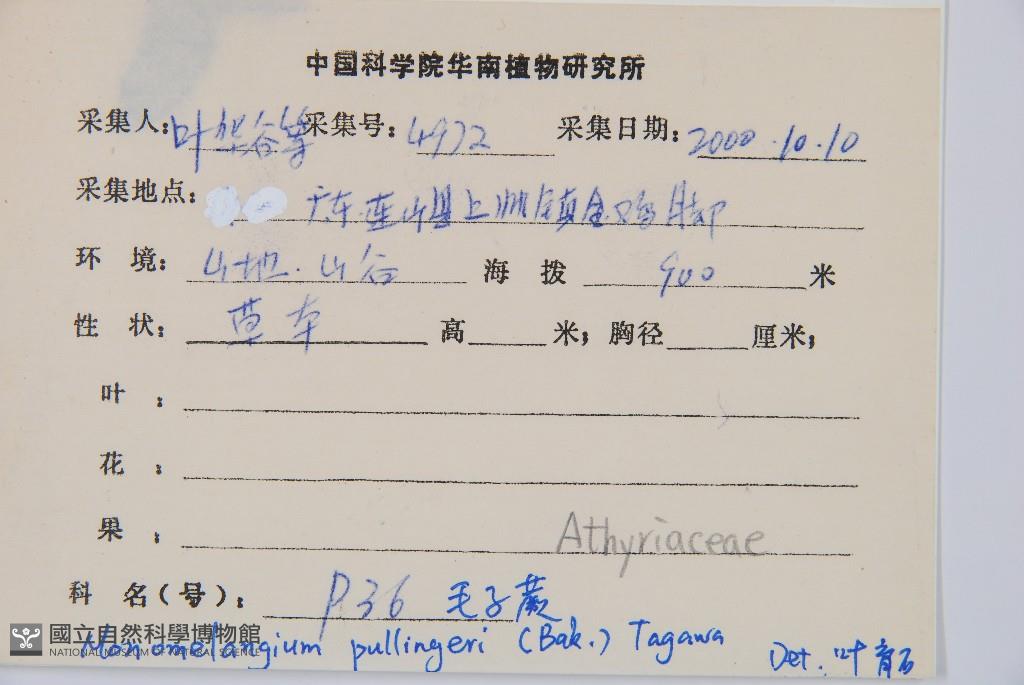 中国科学院华南植物研究所
采集人:叶华谷等 采集号:4972 采集日期:2000.10.10
采集地点: 广东.连山县上帅镇金鸡脚
环 境:山地.山谷 海 拨 900 米
性 状:草本 高 米; 胸径 厘米;
叶 :
花 :
果 : Athyriaceae
科 名(号): P36 毛子蕨
Monomelangium pullingeri (Bak.) Tagawa
Det. 叶育石
國立自然科學博物館
NATIONAL MUSEUM OF NATURAL SCIENCE